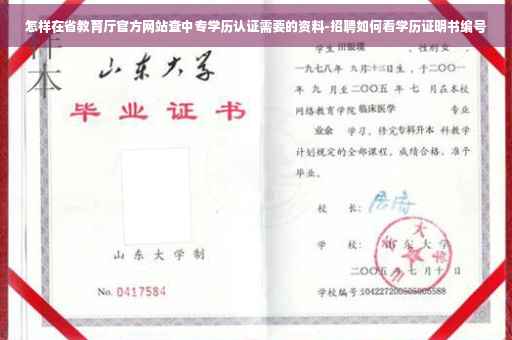 怎样在省教育厅官方网站查中专学历认证需要的资料-招聘如何看学历证明书编号
样本
山东大学
毕业证书
山东大学制
No. 0417584
学生 田银瑞 ，性别女，
一九七八年 九月十三日生，于二〇〇一
年 九 月至二〇〇五 年 七 月在本校
网络教育学院 临床医学 专业
业余 学习，修完专科升本 科教学
计划规定的全部课程，成绩合格，准予
毕业。
校 长：
学 校： 山东大学
二〇〇五年 七 月十 日
学校编号:104227200505005588